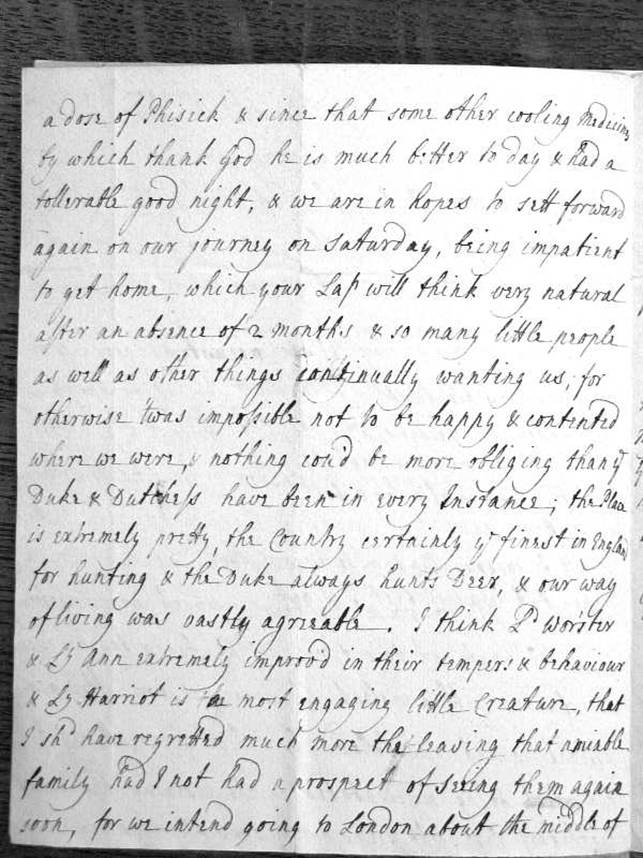 a dose of Phisick & since that some other cooling Medicine
by which thank God he is much better to day & had a
tollerable good night, & we are in hopes to sett forward
again on our journey on Saturday, being impatient
to get home, which your Lap will think very natural
after an absence of 2 months & so many little people
as well as other things continually wanting us, for
otherwise 'twas impossible not to be happy & contented
where we were, & nothing cou'd be more obliging than ye
Duke & Dutchess have been in every Instance; the Place
is extremely pretty, the Country certainly ye finest in England
for hunting & the Duke always hunts Deer, & our way
of living was vastly agreeable. I think Ld Worster
& Ly Ann extremely improv'd in their tempers & behaviour
& Ly Harriot is a most engaging little Creature, that
I shd have regretted much more the leaving that amiable
family had I not had a prospect of seeing them again
soon, for we intend going to London about the middle of